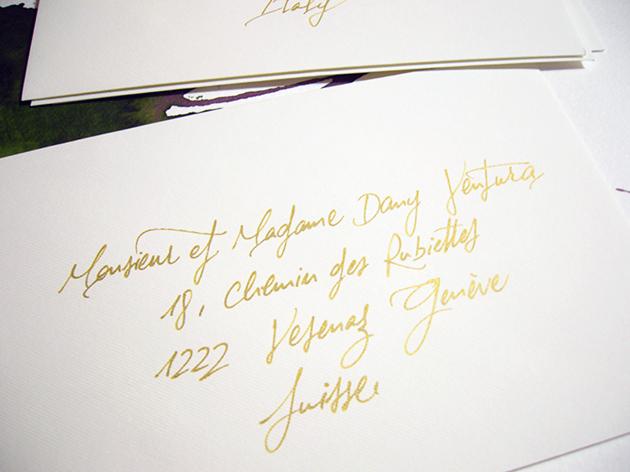 Italy
Monsieur et Madame Dany Ventura
18, Chemin des Rubiettes
1222 Vesenaz Genève
Suisse